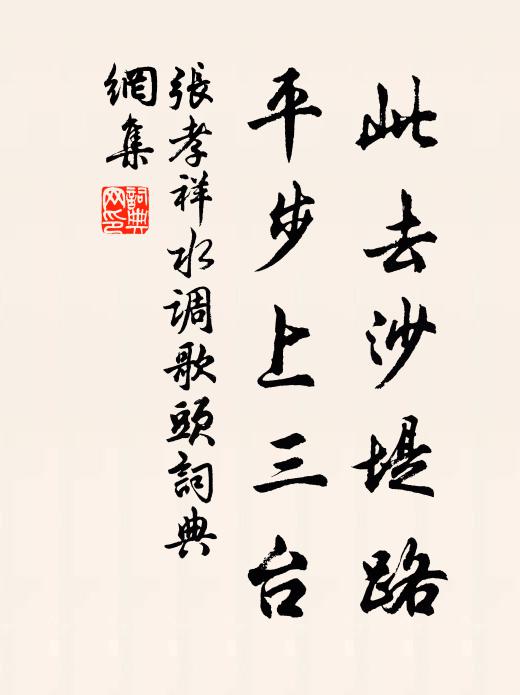 此去沙堤路
平步上三台
張孝祥水调歌頭詞典
網集
詞典网印